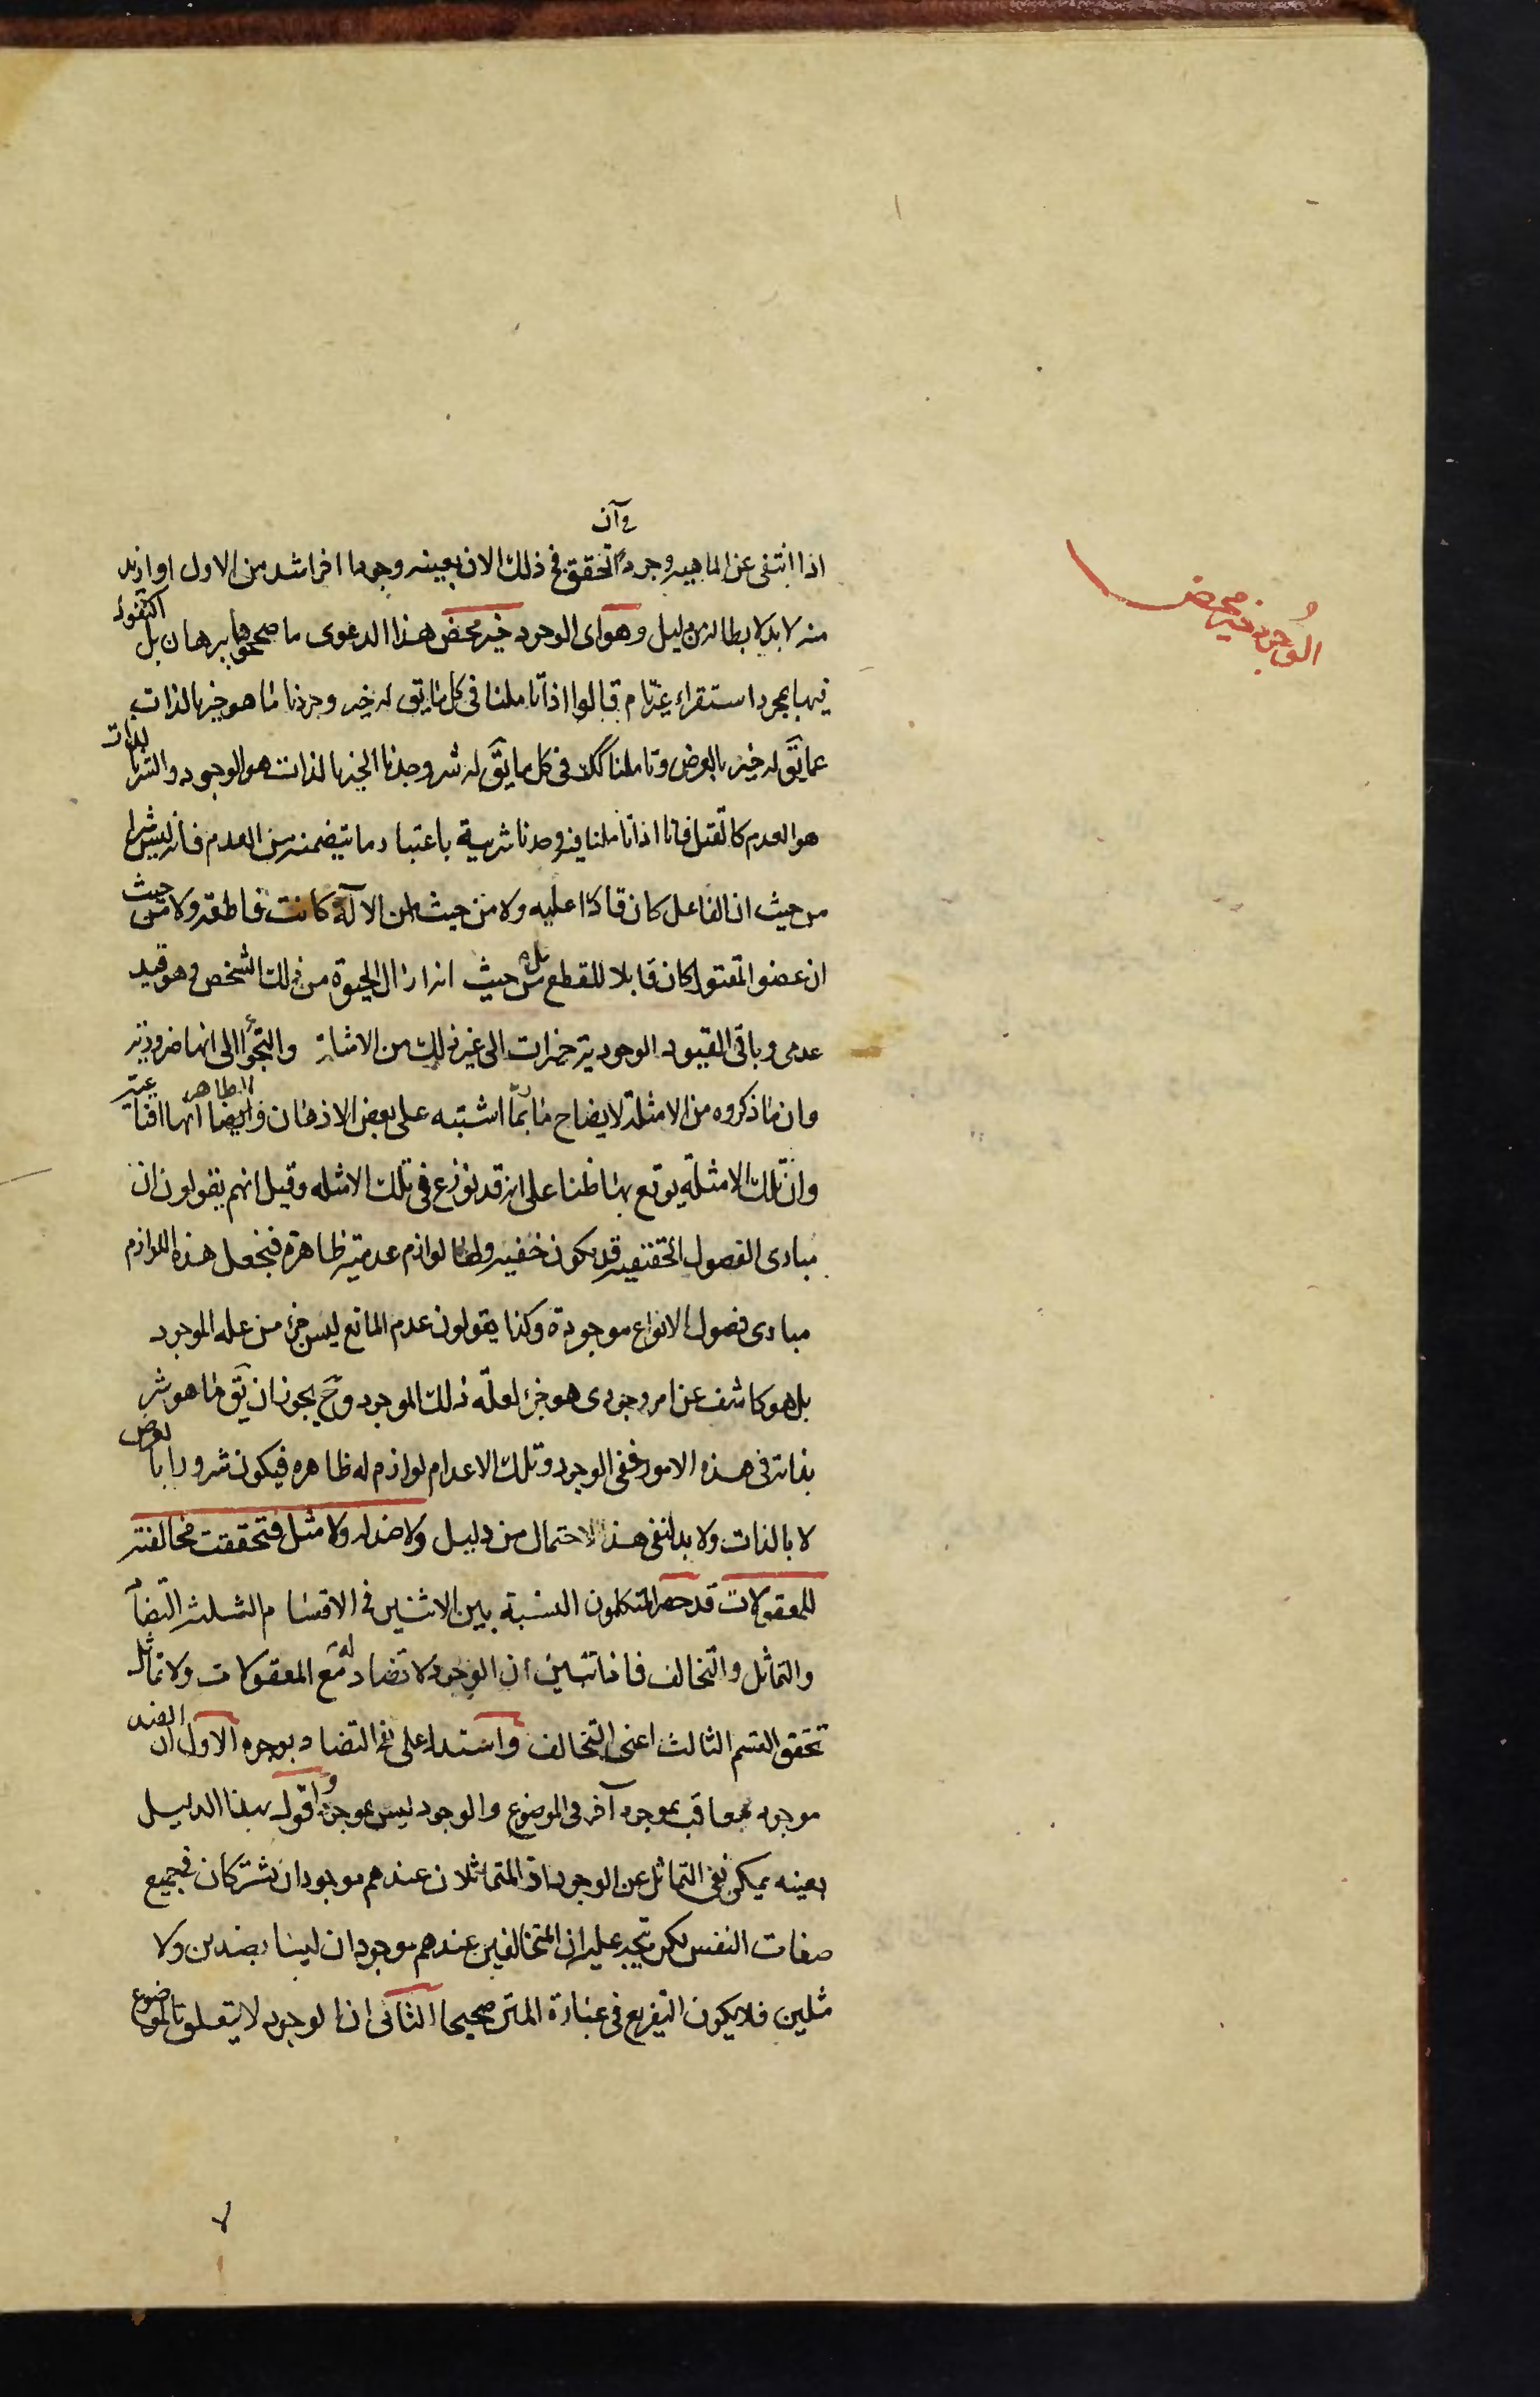 الوجود خير محض
في آن
اذا انتفى عن الماهية وجود تحقق في ذلك الان بعينه وجودا اخر اشد من الاول او ازيد
منه لا بد لابطاله من دليل وهو اى الوجود خير محض هذا الدعوى ما صححوها ببرهان بل اكتفوا
فيها بمجرد استقراء غير تام قالوا اذا تاملنا فى كل ما يق له خير وجدنا ما هو خير بالذات
عما يق له خير بالعرض وتاملنا كلا فى كل ما يق له شر وجدنا الخير بالذات هو الوجود والشر بالذات
هو العدم كالقتل فانا اذا تاملنا فيه وجدنا شريته باعتبار ما يتضمنه من العدم فانه ليس شرا
من حيث ان الفاعل كان قادرا عليه ولا من حيث ان الالة كانت قاطعة ولا من حيث
ان عضو المقتول كان قابلا للقطع بل من حيث انه ازال الحيوة من ذلك الشخص وهو قيد
عدمى وباقى القيود الوجودية خيرات الى غير ذلك من الامثلة والتجؤا الى انها ضرورية
وان ما ذكروه من الامثلة لايضاح ما ربما اشتبه على بعض الاذهان والظاهر انها اقناعية
وان تلك الامثلة يوقع بها ظنا على انه قد نوزع فى تلك الامثله وقيل انهم يقولون ان
مبادى الفصول الحقيقية قد يكون خفية ولها لوازم عدمية ظاهرة فنجعل هذه اللوازم
مبادى فصول الانواع موجودة وكذا يقولون عدم المانع ليس جزء من علة الموجود
بل هو كاشف عن امر وجودى هو جزء لعلة ذلك الموجود وح يجوز ان يق ما هو شر
بذاته فى هذه الامور خفى الوجود وتلك الاعدام لوازم له ظاهره فيكون شرورا بالعرض
لا بالذات ولا بد لنفى هذا الاحتمال من دليل ولا ضد له ولا مثل فتحققت مخالفته
للمعقولات قد حصر المتكلمون النسبة بين الاثنين فى الاقسام الثلث التضاد
والتماثل والتخالف فاذا تبين ان الوجود لا تضاد له مع المعقولات ولا تماثل
تحقق القسم الثالث اعنى التخالف واستدل على نفى التضاد بوجوه الاول ان الضد
موجود معاقب بموجود آخر فى الموضوع والوجود ليس بموجود واقول بهذا الدليل
بعينه يمكن نفى التماثل عن الوجود اذ المتماثلان عندهم موجودان يشتركان فى جميع
صفات النفس لكن يتجه عليه ان المتخالفين عندهم موجودان ليسا بضدين ولا
مثلين فلا يكون التفريع فى عبارة المتن صحيحا الثانى ان الوجود لا يتعلق بالموضوع